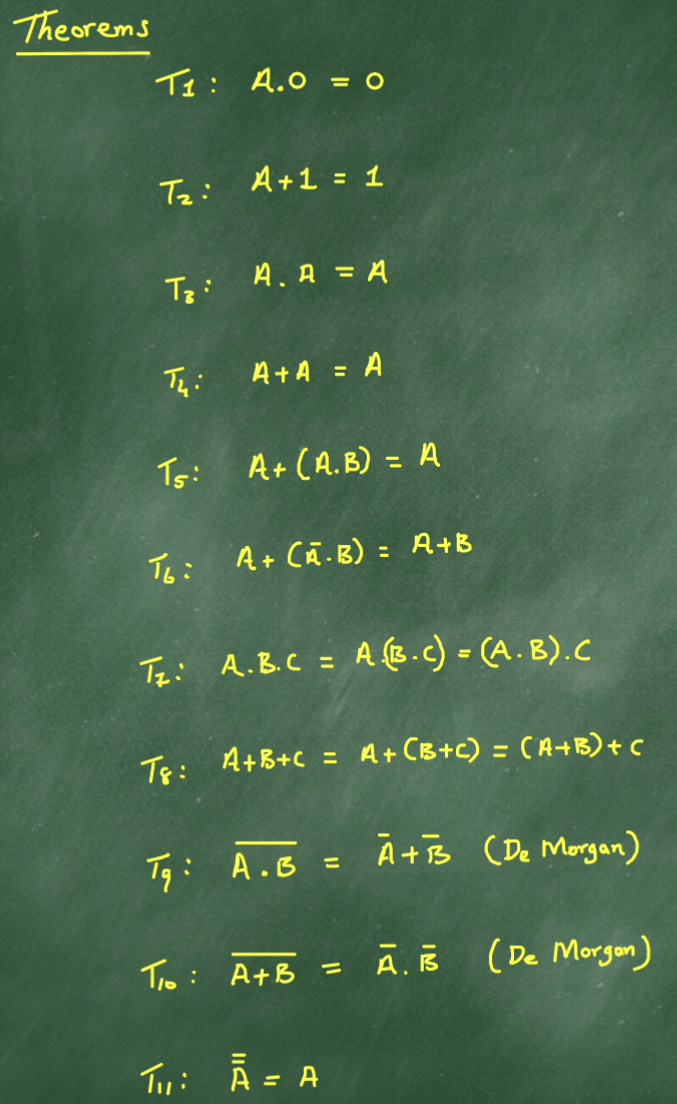 Theorems
T1: A.0 = 0
T2: A+1 = 1
T3: A.A = A
T4: A+A = A
T5: A+(A.B) = A
T6: A+(Ā.B) = A+B
T7: A.B.C = A.(B.C) = (A.B).C
T8: A+B+C = A+(B+C) = (A+B)+C
T9: A̅.̅B̅ = Ā+B̄ (De Morgan)
T10: A̅+̅B̅ = Ā.B̄ (De Morgan)
T11: A̿ = A